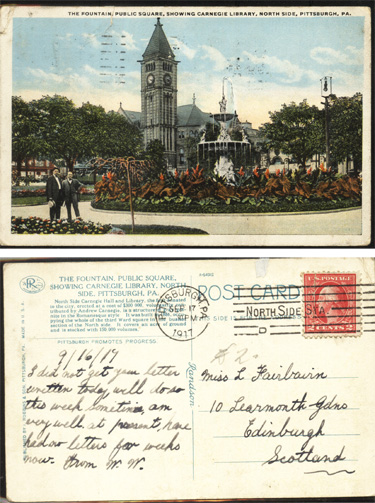 THE FOUNTAIN, PUBLIC SQUARE, SHOWING CARNEGIE LIBRARY, NORTH SIDE, PITTSBURGH, PA.
THE FOUNTAIN, PUBLIC SQUARE,
SHOWING CARNEGIE LIBRARY, NORTH
SIDE, PITTSBURGH, PA.
North Side Carnegie Hall and Library, the
in the city, erected at a cost of $300 000,
tributed by Andrew Carnegie, is a structure
ter in the Romanesque style. It was both
pying the whole of the third Ward square
section of the North side. It covers an acre of ground
and is stocked with 100 000 volumes.
PITTSBURGH PROMOTES PROGRESS.
9/16/17
I did not get your letter
written today, will do so
this week sometime, am
very well at present, have
had no letters for weeks
now. From W. W.
MADE IN U. S. A.
POST CARD
PITTSBURGH, PA.
SEP 17
PM
1917
NORTH SIDE STA.
U.S. POSTAGE
2 CENTS 2
Miss L Fairbairn
10 Learmonth Gdns
Edinburgh
Scotland